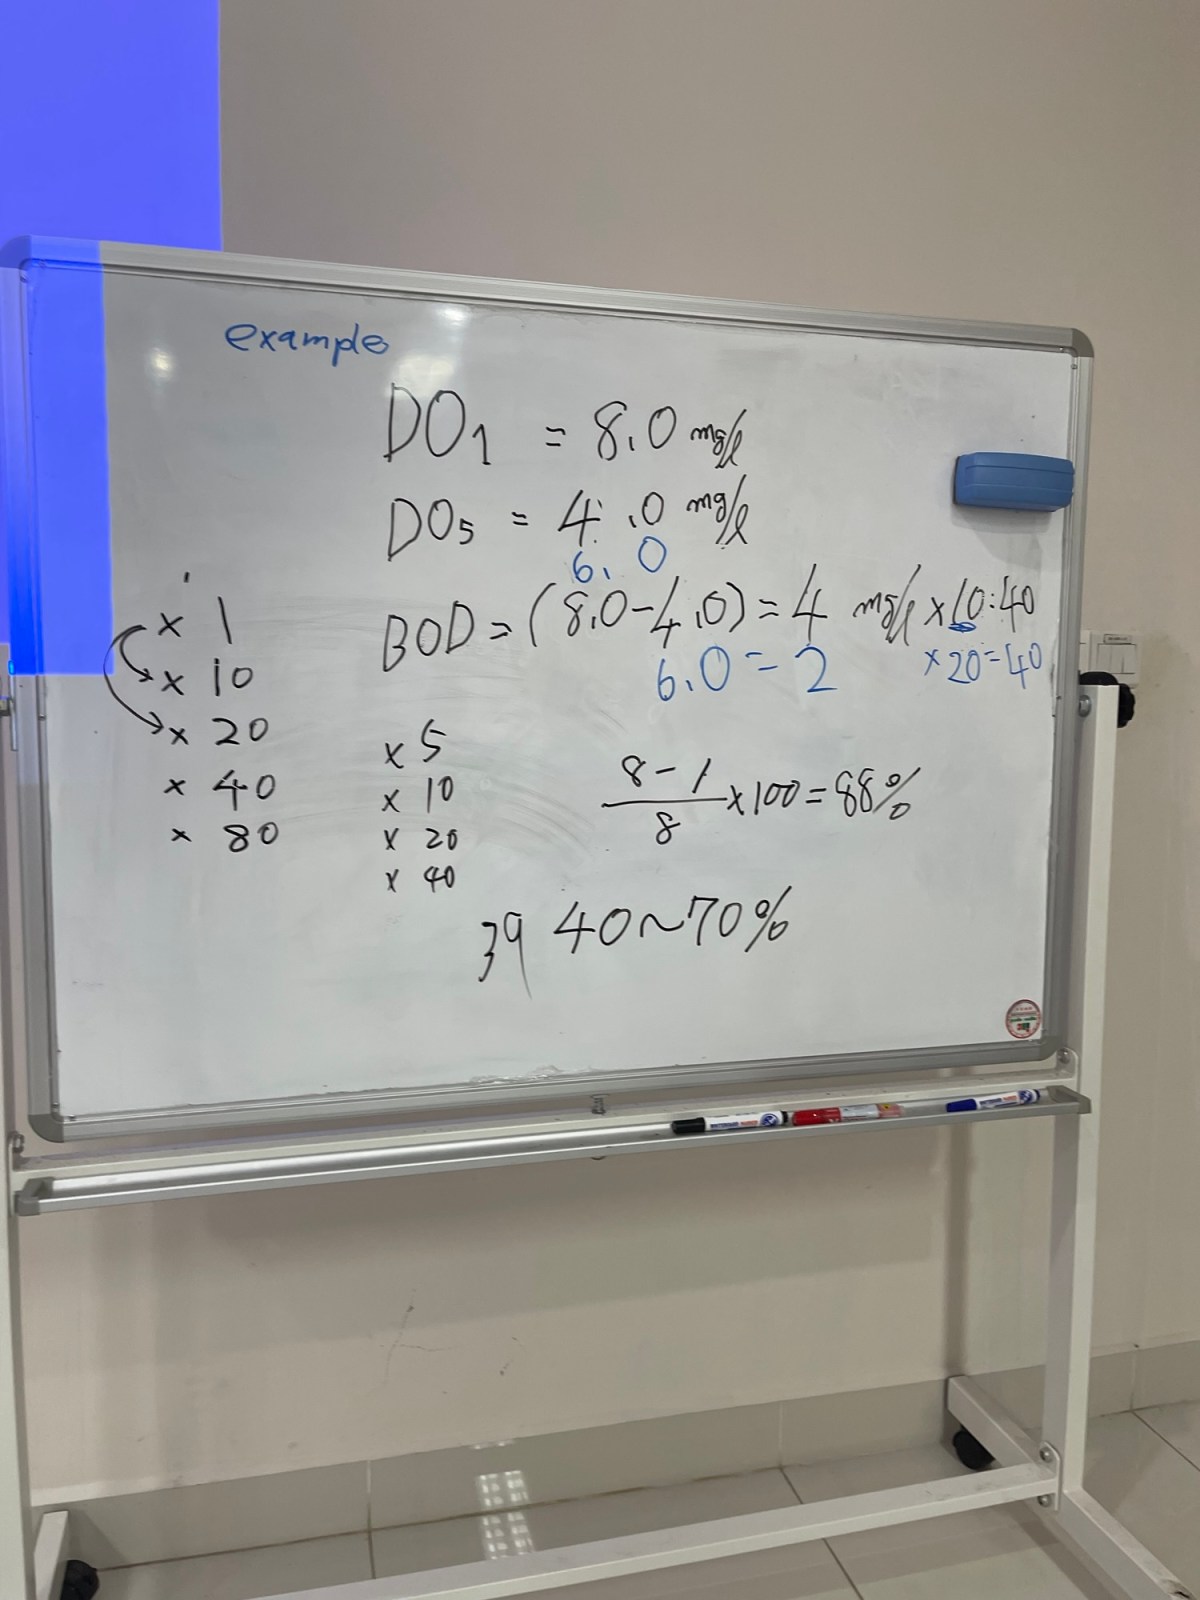 example
DO₁ = 8.0 mg/l
DO₅ = 4.0 mg/l
6.0
BOD = (8.0-4.0) = 4 mg/l ×10:40
6.0 = 2 ×20=40
× 1
× 10
× 20
× 40
× 80
× 5
× 10
× 20
× 40
8-1
8
×100=88%
39 40~70%